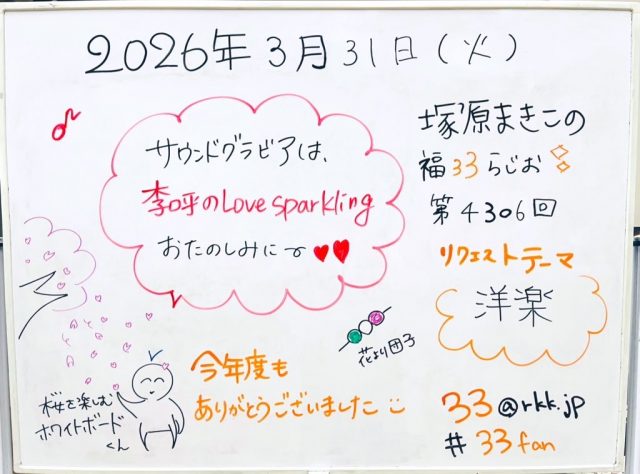 2026年3月31日(火)
サウンドグラビアは、
李呼のLove sparkling
おたのしみに〜♥♥
塚原まきこの
福33らじお
第4306回
リクエストテーマ
洋楽
花より団子
桜を楽しむ
ホワイトボード
くん
今年度も
ありがとうございました
33@rkk.jp
#33fan